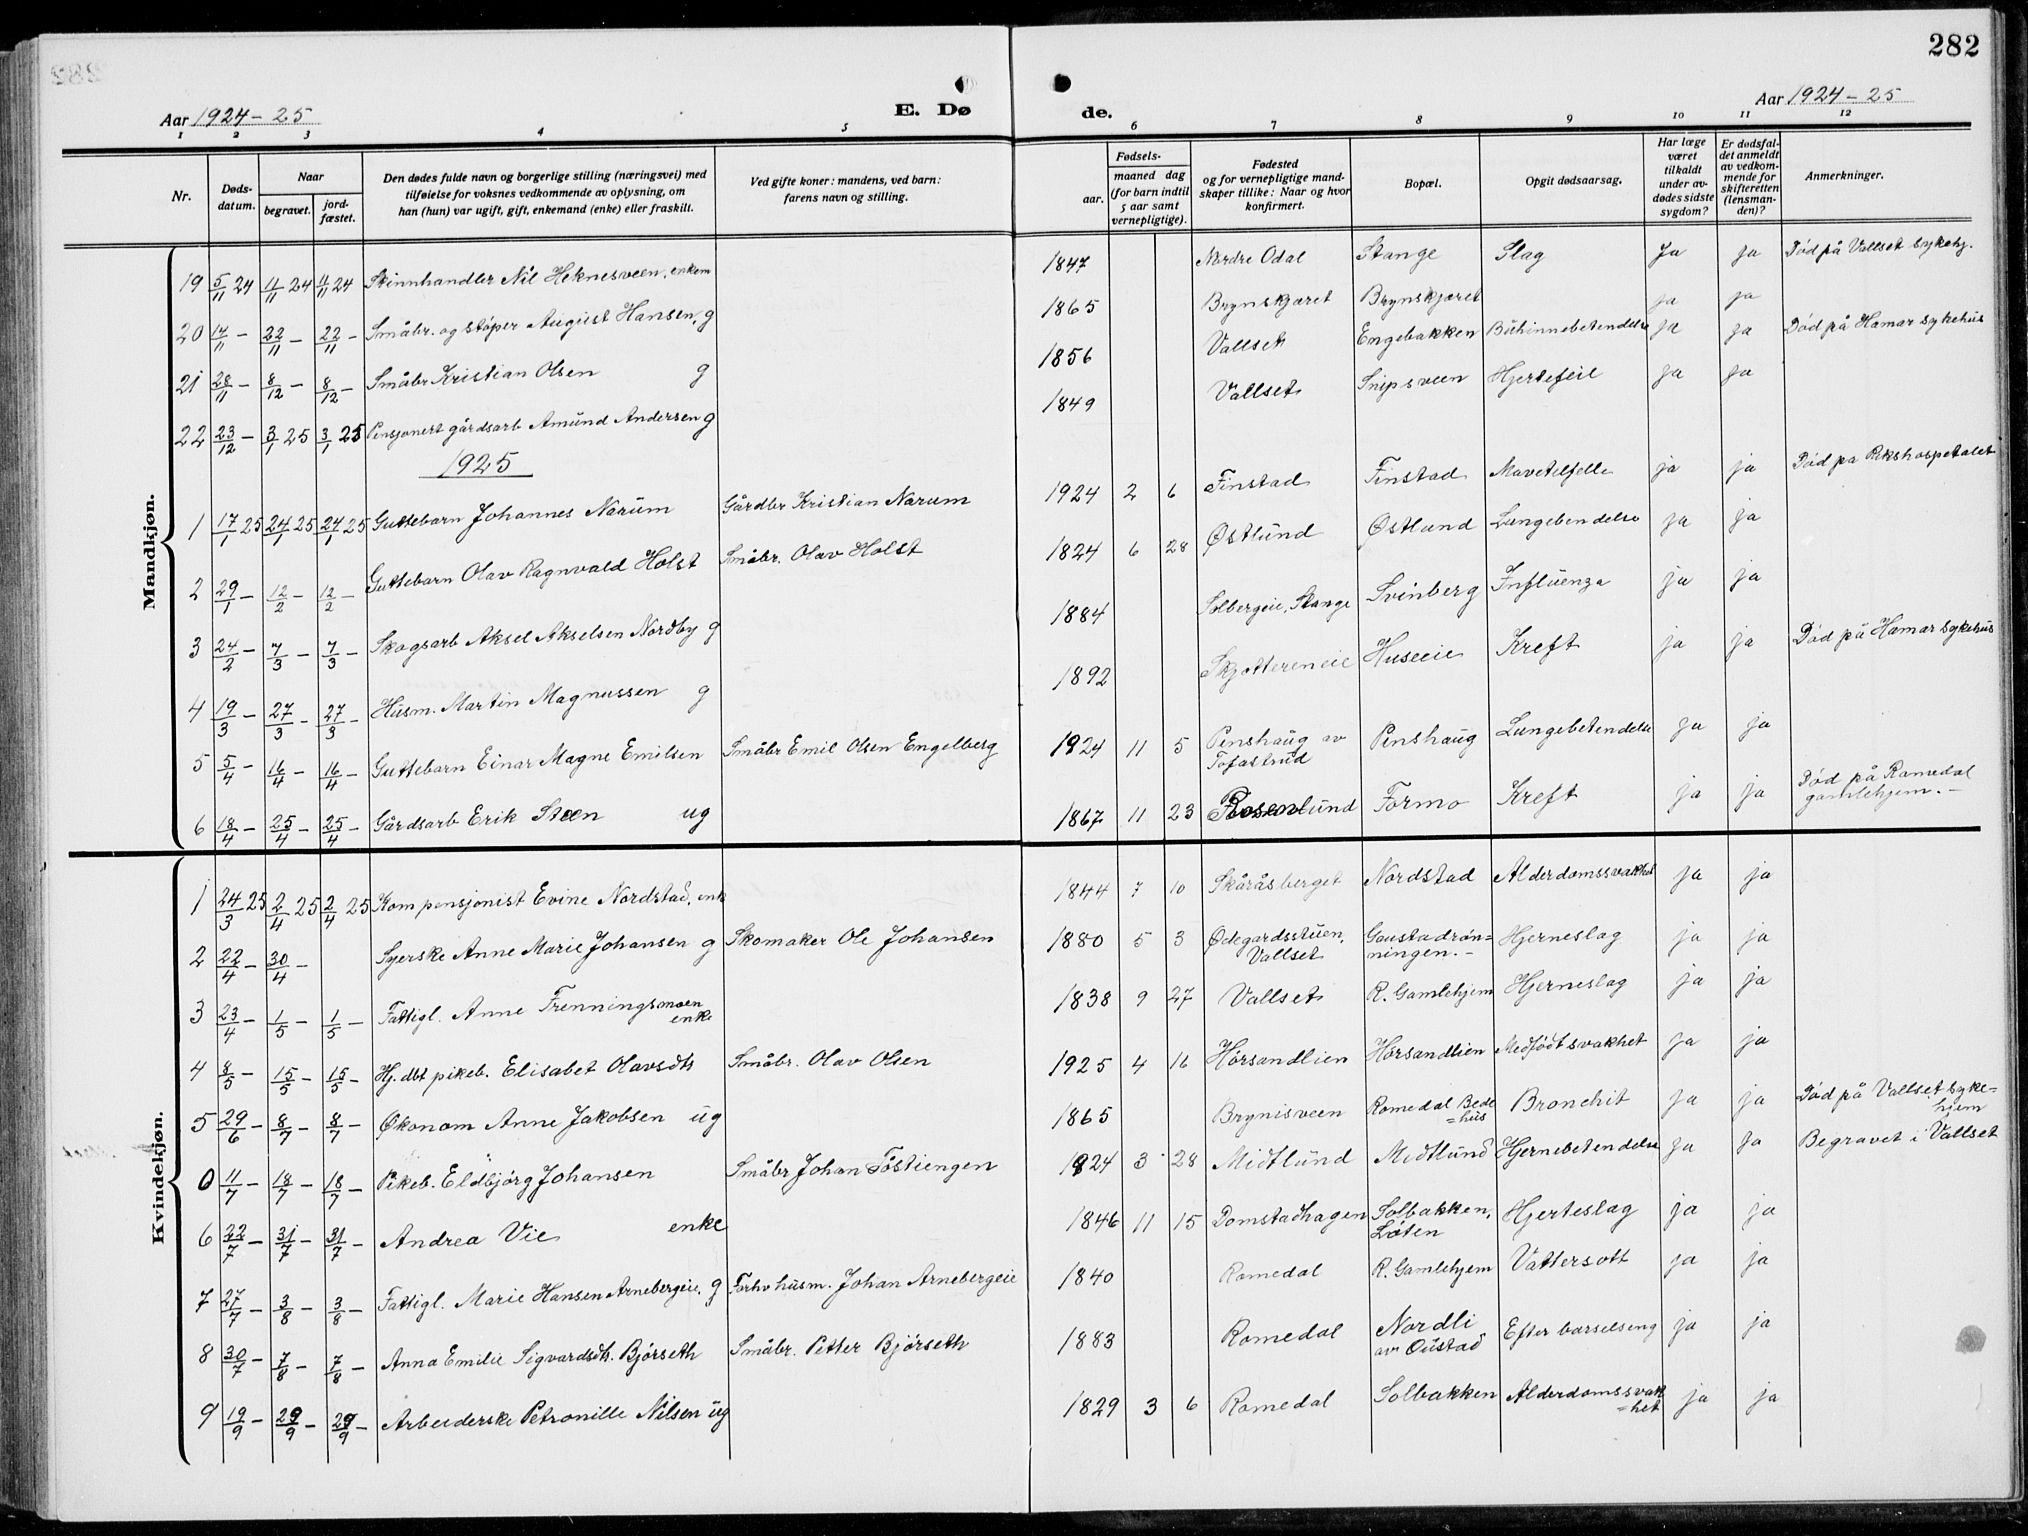 282
Aar 1924-25
E. Dø
de.
Aar 1924-25
1 2 3 4 5 6 7 8 9 10 11 12
Nr. Døds-datum. Naar begravet. jord-fæstet. Den dødes fulde navn og borgerlige stilling (næringsvei) med tilføielse for voksnes vedkommende av oplysning, om han (hun) var ugift, gift, enkemand (enke) eller fraskilt. Ved gifte koner: mandens, ved barn: farens navn og stilling. Fødsels- aar. maaned dag (for barn indtil 5 aar samt vernepligtige). Fødested og for vernepligtige mandskaper tillike: Naar og hvor konfirmert. Bopæl. Opgit dødsaarsag. Har læge været tilkaldt under av-dødes sidste sygdom? Er dødsfal-det anmeldt av vedkom-mende for skifteretten (lensman-den)? Anmerkninger.
Mandkjøn.
19 5/11 24 11/11 24 11/11 24 Skinnhandler Nil Heknesveen, enkem 1847 Nordre Odal Stange Slag Ja Ja Død på Vallset sykehj.
20 14/11 - 22/11 - 22/11 - Småbr. og støper August Hansen, g 1865 Brynskjæret Brynskjæret ja ja
21 28/11 - 8/12 - 8/12 - Småbr Kristian Olsen g 1856 Vallset Engebakken Bukhinnebetendelse ja ja Død på Hamar sykehus
22 23/12 - 3/1 25 3/1 25 Pensjonert gårdsarb Amund Andersen g 1849 Vallset Snipsveen Hjertefeil ja ja
1925
1 17/1 25 24/1 25 24/1 25 Guttebarn Johannes Narum Gårdbr Kristian Narum 1924 2 6 Finstad Finstad Mavetilfelle ja ja Død på Rikshospetalet
2 29/1 - 12/2 - 12/2 - Guttebarn Olav Ragnvald Holst Småbr. Olav Holst 1824 6 28 Østlund Østlund Lungebendelse ja ja
3 24/2 - 7/3 - 7/3 - Skogsarb Aksel Akselsen Nordby g 1884 Solbergeie, Stange Svinberg Influenza ja ja
4 19/3 - 27/3 - 27/3 - Husm. Martin Magnussen g 1892 Skjottereneie Huseeie Kreft ja ja Død på Hamar sykehus
5 5/4 - 16/4 - 16/4 - Guttebarn Einar Magne Emilsen Småbr Emil Olsen Engelberg 1924 11 5 Penshaug av Tofastrud Penshaug Lungebetendelse ja ja
6 18/4 - 25/4 - 25/4 - Gårdsarb Erik Steen ug 1867 11 23 Rosenlund Formo Kreft ja ja Død på Romedal gamlehjem.-
Kvindekjøn.
1 24/3 25 2/4 25 2/4 25 Kom pensjonist Evine Nordstad, enk 1844 7 10 Skåråsberget Nordstad Alderdomssvakhet ja ja
2 22/4 - 30/4 - Syerske Anne Marie Johansen g Skomaker Ole Johansen 1880 5 3 Ødegardsstuen, Vallset Gaustadrøn=ningen.- Hjerneslag ja ja
3 23/4 - 1/5 - 1/5 - Fattigl. Anne Frenningsmoen enke 1838 9 27 Vallset R. Gamlehjem Hjerneslag ja ja
4 8/5 - 15/5 - 15/5 - Hj. dbt pikeb. Elisabet Olavsdtr Småbr. Olav Olsen 1925 4 16 Horsandlien Horsandlien Medfødt svakhet ja ja
5 29/6 - 8/7 - 8/7 - Økonom Anne Jakobsen ug 1865 Brynisveen Romedal Bede=hus Bronchit ja ja Død på Vallset syke=hjem
0 11/7 - 18/7 - 18/7 - Pikeb. Eldbjørg Johansen Småbr Johan Tøstiengen 1924 3 28 Midtlund Midtlund Hjernebetendelse ja ja Begravet i Vallset
6 22/7 - 31/7 - 31/7 - Andrea Vie enke 1846 11 15 Domstadhagen Solbakken, Løten Hjerteslag ja ja
7 27/7 - 3/8 - 3/8 - Fattigl. Marie Hansen Arnebergeie, g Forhv husm. Johan Arnebergeie 1840 Romedal R. Gamlehjem Vattersott ja ja
8 30/7 - 7/8 - 7/8 - Anna Emilie Sigvardsdtr. Bjørseth Småbr. Petter Bjørseth 1883 Romedal Nordli av Oustad Efter barselseng ja ja
9 19/9 - 29/9 - 29/9 - Arbeiderske Petronille Nilsen ug 1829 3 6 Romedal Solbakken Alderdomssvak=het ja ja